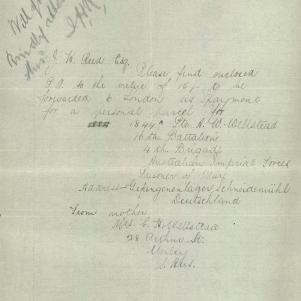 J. W. Reed Esq.
Please find enclosed
P.O. to the value of 10/- to be
forwarded to London as payment
for a personal parcel for
1844A Pte. H. W. Wellstead
16th Battalion
4th Brigade
Australian Imperial Forces
Prisoner of War
Address - Gefangenenlager, Schneidemühl
Deutschland
From mother
Mrs. E. Wellstead
28 St.
Unley
S. Aus.